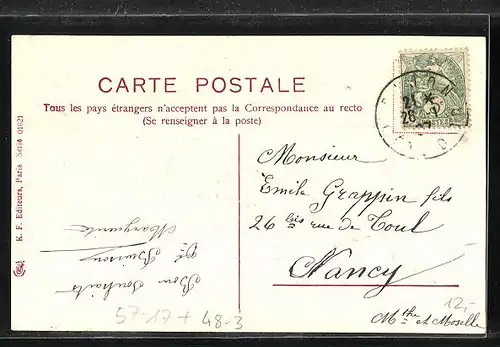 CARTE POSTALE
Tous les pays étrangers n'acceptent pas la Correspondance au recto
(Se renseigner à la poste)
K. F. Editeurs, Paris Serie 01621
Monsieur
Emile Grappin fils
26 bis rue de Toul
Nancy
Mthe et Moselle
Bons Souhaits
Marguerite
57-17+ 48-3
12,-